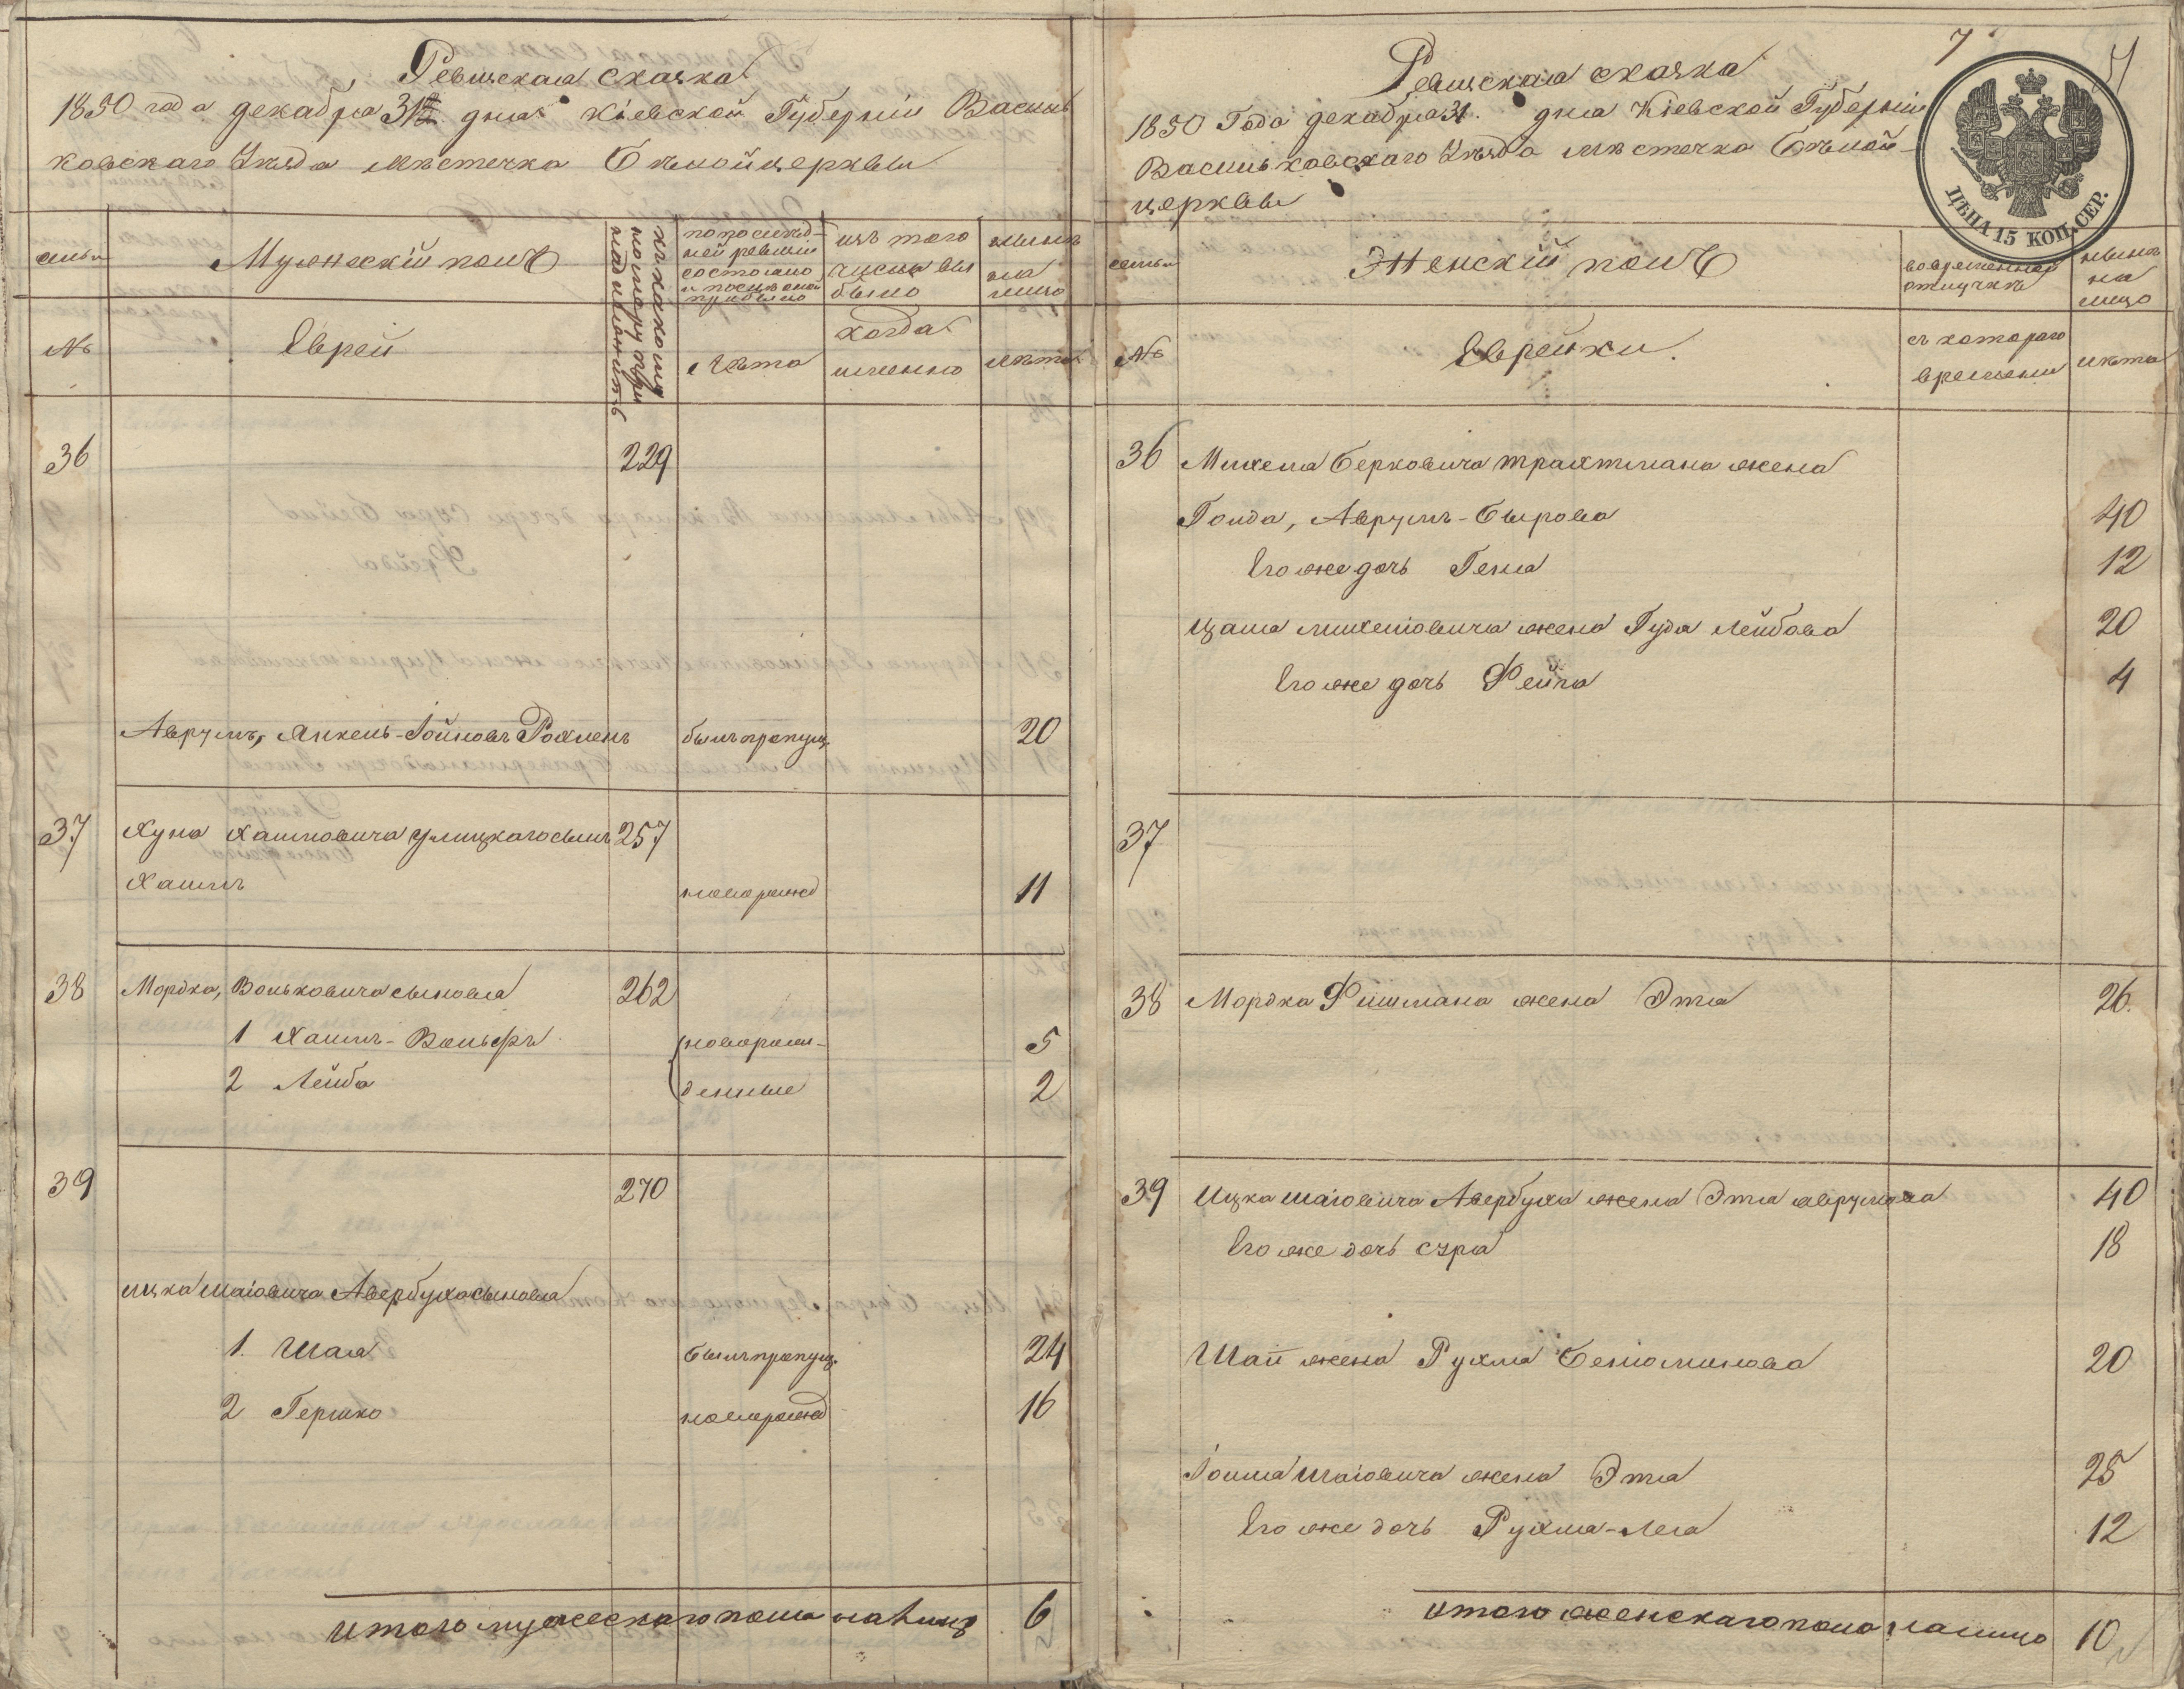 Ревизская сказка
1850 года декабря 31 дня Кіевской Губерніи Василь
ковскаго Уѣзда мѣстечка Бѣлойцеркви
семьи
Мужескій полъ
къ какому номеру принадлежитъ
по послѣд-
ней ревизіи
состояло
и послѣ оной
прибыло
изъ того
числа вы
было
нынѣ
на
лицо
№
Евреи
Лѣта
когда
именно
лѣта
36 229
Аврумъ, Янкель-Іойновъ Рохленъ былъ пропущ. 20
37 Хуна Хаимовича Улицкаго сынъ 257
Хаимъ новорожд 11
38 Мордка, Вольковича сыновья 262
1 Хаимъ-Вольфъ новорож- 5
2 Лейба денные 2
39 270
Ицка Шаіовича Авербуха сыновья
1. Шая былъ пропущ. 24
2 Гершко новорожд 16
итого мужескаго пола на лицо 6
7
Ревизская сказка
1850 Года декабря 31. дня Кіевской Губерніи
Васильковскаго Уѣзда мѣстечка Бѣлой-
церкви
ЦѢНА 15 КОП. СЕР.
семьи
Женскій полъ
во временной
отлучкѣ
нынѣ
на
лицо
№
Еврейки.
съ котораго
времени
лѣта
36 Михеля Берковича Трахтмана жена
Голда, Аврумъ-Сырова 40
Его же дочь Геня 12
Цаля Михеліовича жена Гуда Лейбова 20
Его же дочь Фейга 4
37
38 Мордка Фишмана жена Эта 26.
39 Ицка Шаіовича Авербуха жена Эта Аврумова 40
Его же дочь Сура 18
Шаи жена Рухля Беніоминова 20
Іоиля Шаіовича жена Эта 25
Его же дочь Рухля-Лея 12
итого женскаго пола налицо 10